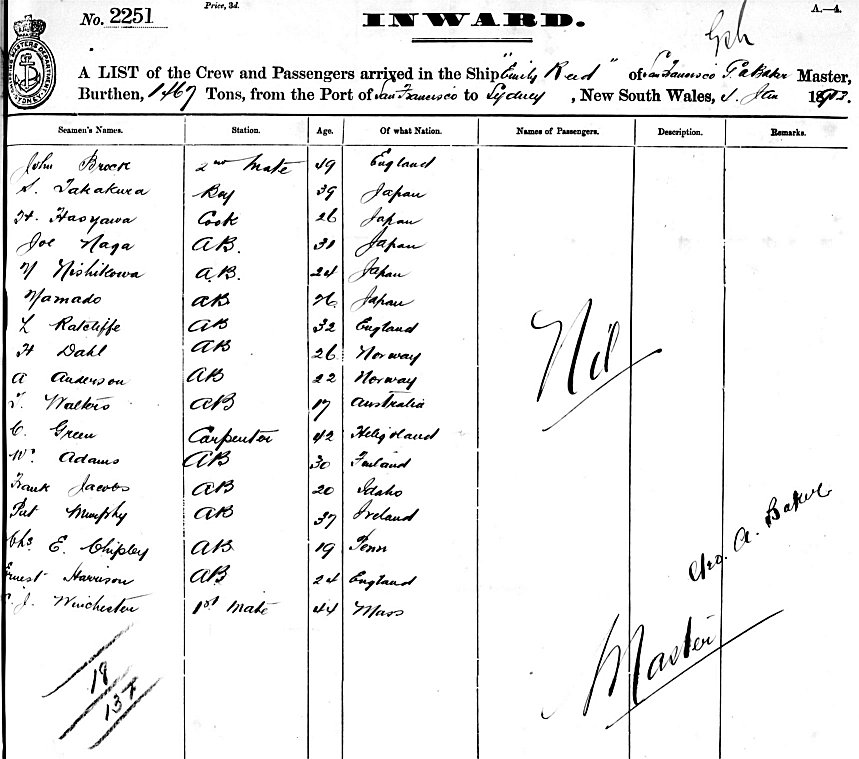 No. 2251
Price, 3d.
INWARD.
A.—4.
A LIST of the Crew and Passengers arrived in the Ship "Emily Reed" of San Francisco Baker Master,
Burthen, 1467 Tons, from the Port of San Francisco to Sydney, New South Wales, Jan
Seamen's Names. Station. Age. Of what Nation. Names of Passengers. Description. Remarks.
John Brock 2nd Mate 49 England
S. Takakura Boy 39 Japan
H. Hasyawa Cook 26 Japan
Joe Naga AB. 31 Japan
N Nishikowa A.B. 24 Japan
Yamado AB 26 Japan
L Ratcliffe AB 32 England
H Dahl AB 26 Norway
A Anderson AB 22 Norway
Walters AB 17 Australia
C. Green Carpenter 42 Heligoland
Wm Adams AB 30 Finland
Frank Jacobs AB 20 Idaho
Pat Murphy AB 37 Ireland
Chs E. Chipley AB 19 Penn
Ernest Harrison AB 24 England
J. Winchester 1st Mate 44 Mass
Nil
Geo. A. Baker
Master
18